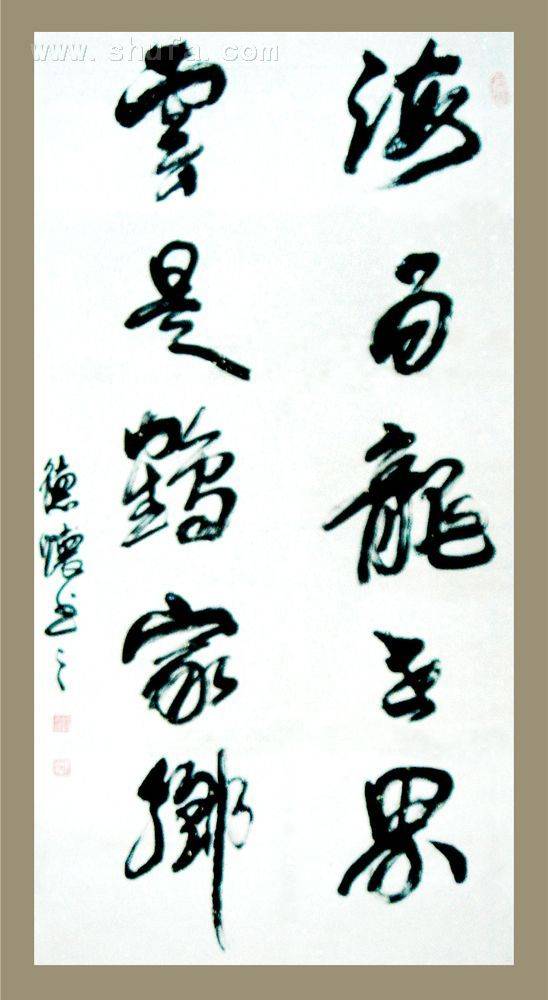 海为龍世界
雲是鶴家鄉
德懷书之
www.shufa.com